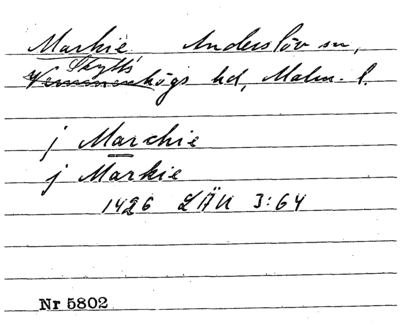 Markie Anderslöv sn,
Skytts
Vemmenhögs hd, Malm. l.
j Marchie
j Markie
1426 LÄU 3:64
Nr 5802